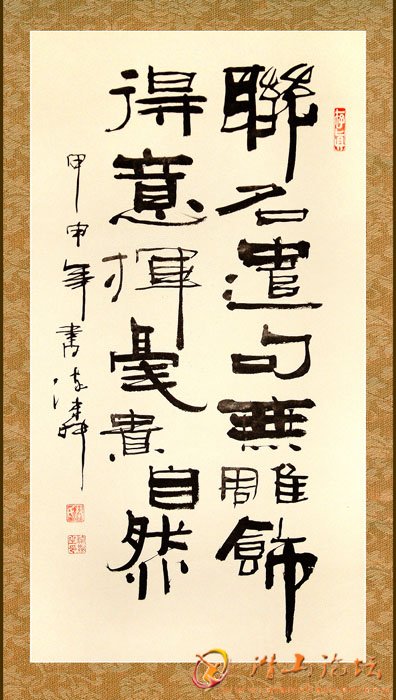 聯名遣句無雕飾
得意揮毫貴自然
甲申年書
潜山论坛